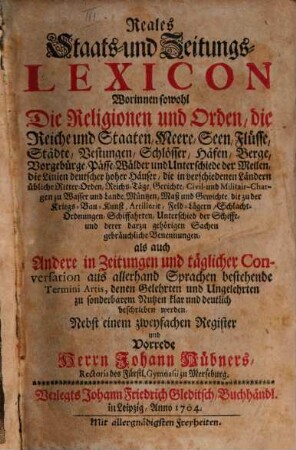 Reales
Staats- und Zeitungs-
LEXICON
Worinnen sowohl
Die Religionen und Orden, die
Reiche und Staaten, Meere, Seen, Flüsse,
Städte, Vestungen, Schlösser, Häfen, Berge,
Vorgebürge, Pässe, Wälder und Unterschiede der Meilen,
die Linien deutscher hoher Häuser, die in verschiedenen Ländern
übliche Ritter-Orden, Reichs-Täge, Gerichte, Civil- und Militair-Char-
gen zu Wasser und Lande, Müntzen, Maß und Gewichte, die zu der
Kriegs-Bau-Kunst, Artillerie, Feld-Lägern, Schlacht-
Ordnungen, Schiffahrten, Unterschied der Schiffe,
und derer darzu gehörigen Sachen
gebräuchliche Benennungen,
als auch
Andere in Zeitungen und täglicher Con-
versation aus allerhand Sprachen bestehende
Termini Artis, denen Gelehrten und Ungelehrten
zu sonderbarem Nutzen klar und deutlich
beschrieben werden.
Nebst einem zweyfachen Register
und
Vorrede
Herrn Johann Hübners,
Rectoris des Fürstl. Gymnasii zu Merseburg.
Verlegts Johann Friedrich Gleditsch, Buchhändl.
in Leipzig, Anno 1704.
Mit allergnädigsten Freyheiten.